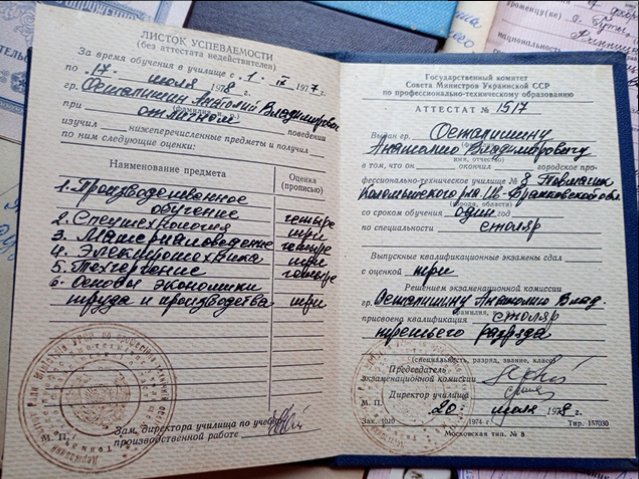 ЛИСТОК УСПЕВАЕМОСТИ
(без аттестата недействителен)
За время обучения в училище с 1. IX 1977 г.
по 17. июля 1978 гр.
Осталишин Анатолий Владимирович
(фамилия, и., о.)
при отличном поведении
изучил нижеперечисленные предметы и получил
по ним следующие оценки:
Наименование предмета
Оценка
(прописью)
1. Производственное
обучение четыре
2. Спецтехнология три
3. Материаловедение четыре
4. Электротехника три
5. Техчерчение четыре
6. Основы экономики
труда и производства три
М. П.
Зам. директора училища по учебно-
производственной работе
Государственный комитет
Совета Министров Украинской ССР
по профессионально-техническому образованию
АТТЕСТАТ № 1517
Выдан гр. Осталишину
Анатолию Владимировичу
(имя, отчество)
в том, что он окончил городское про-
фессионально-техническое училище № 8
Коломыйского р-на Ив-Франковской обл.
(города, области)
со сроком обучения один год
по специальности столяр
Выпускные квалификационные экзамены сдал
с оценкой три
Решением экзаменационной комиссии
гр. Осталишину Анатолию Влад.
фамилия,
присвоена квалификация столяр
третьего разряда
(специальность, разряд, звание, класс)
Председатель
экзаменационной комиссии
Директор училища
М. П. 20 июля 1978 г.
Зак. 1974 г. Тир. 157030
Московская тип. № 8